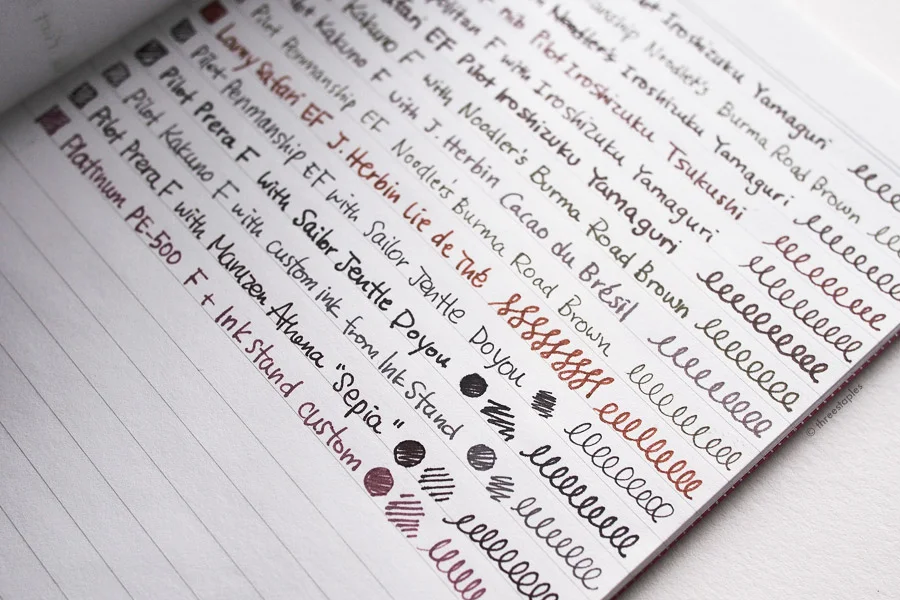 Iroshizuku Yamaguri
Noodler's Burma Road Brown
Iroshizuku Yamaguri
nib Pilot Iroshizuku Tsukushi
F with Iroshizuku Yamaguri
Safari EF Pilot Iroshizuku Yamaguri
Kakuno F with Noodler's Burma Road Brown
Kakuno F with J. Herbin Cacao du Brésil
Pilot Penmanship EF Noodler's Burma Road Brown
Lamy Safari EF J. Herbin Lie de Thé
Pilot Penmanship EF with Sailor Jentle Doyou
Pilot Prera F with Sailor Jentle Doyou
Pilot Kakuno F with custom ink from Ink Stand
Pilot Prera F with Maruzen Athena "Sepia"
Platinum PE-500 F + Ink stand custom
© threestaples